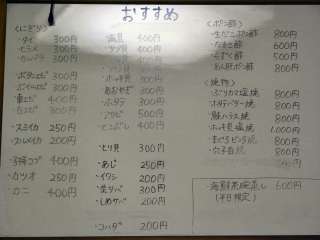 おすすめ
<にぎり>
・タイ 300円
・ヒラメ 300円
・カンパチ 300円
・ボタンエビ 300円
・ぶどうエビ 300円
・車エビ 400円
300円
・スミイカ 250円
・スルメイカ 200円
・子持コブ 400円
・カツオ 250円
・カニ 400円
400円
・ツブ貝 400円
400円
300円
・ホッキ貝 300円
・あおやぎ 300円
・ホタテ 300円
・アワビ 500円
・とこぶし 400円
・とり貝 300円
・あじ 250円
・イワシ 200円
200円
・しめサバ 200円
・コハダ 200円
<ポン酢>
・生ガニポン酢 800円
・なまこ酢 600円
・もずく酢 500円
・あん肝ポン酢 800円
<焼物>
・ぶりカマ塩焼 800円
・ホタテバター焼 800円
・鮭ハラス焼 800円
・ホッキ貝塩焼 1,000円
・まぐろ 焼 800円
・穴子白焼 800円
・海鮮茶碗蒸し 600円
(平日限定)